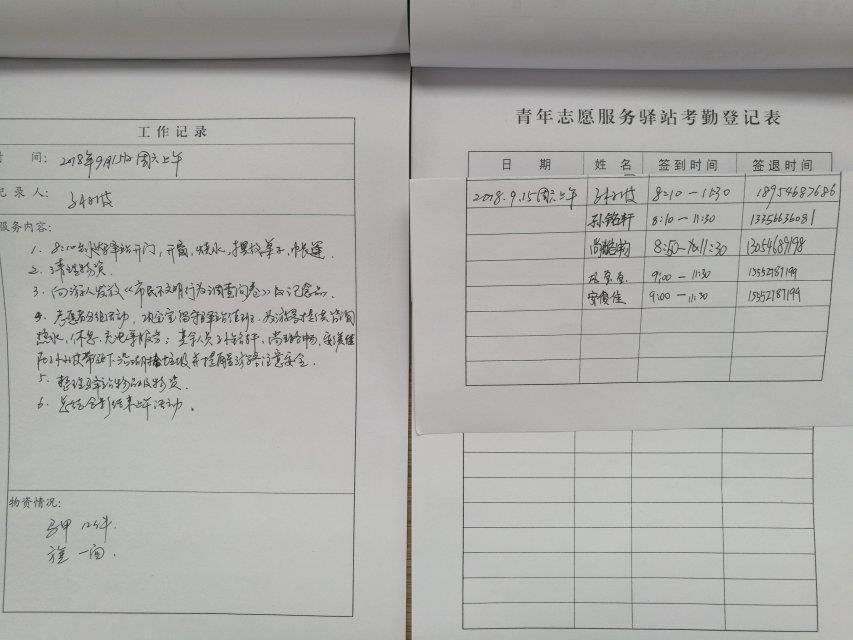 工作记录
间：2018年9月15日周六上午
记录人：
服务内容：
1. 8:10到达驿站开门，开窗，烧水，摆放桌子，帐篷．
2. 清理物资．
3. 向游人发放《市民不文明行为调查问卷》及纪念品．
4. 志愿者分组活动，留守驿站值班，为游客提供咨询
热水，休息，充电等服务；其余人员
在带领下沿湖捡垃圾并提醒游客注意安全．
5. 整理驿站物品及物资．
6. 总结合影结束上午活动．
物资情况：
马甲 12件．
旗 一面．
青年志愿服务驿站考勤登记表
日 期 姓 名 签到时间 签退时间
2018.9.15周六上午 8:10—11:30 18954687686
孙铭轩 8:10—11:30 13356636081
8:50—11:30 13054689198
9:00—11:30 15552187199
安俊佳 9:00—11:30 15552187199